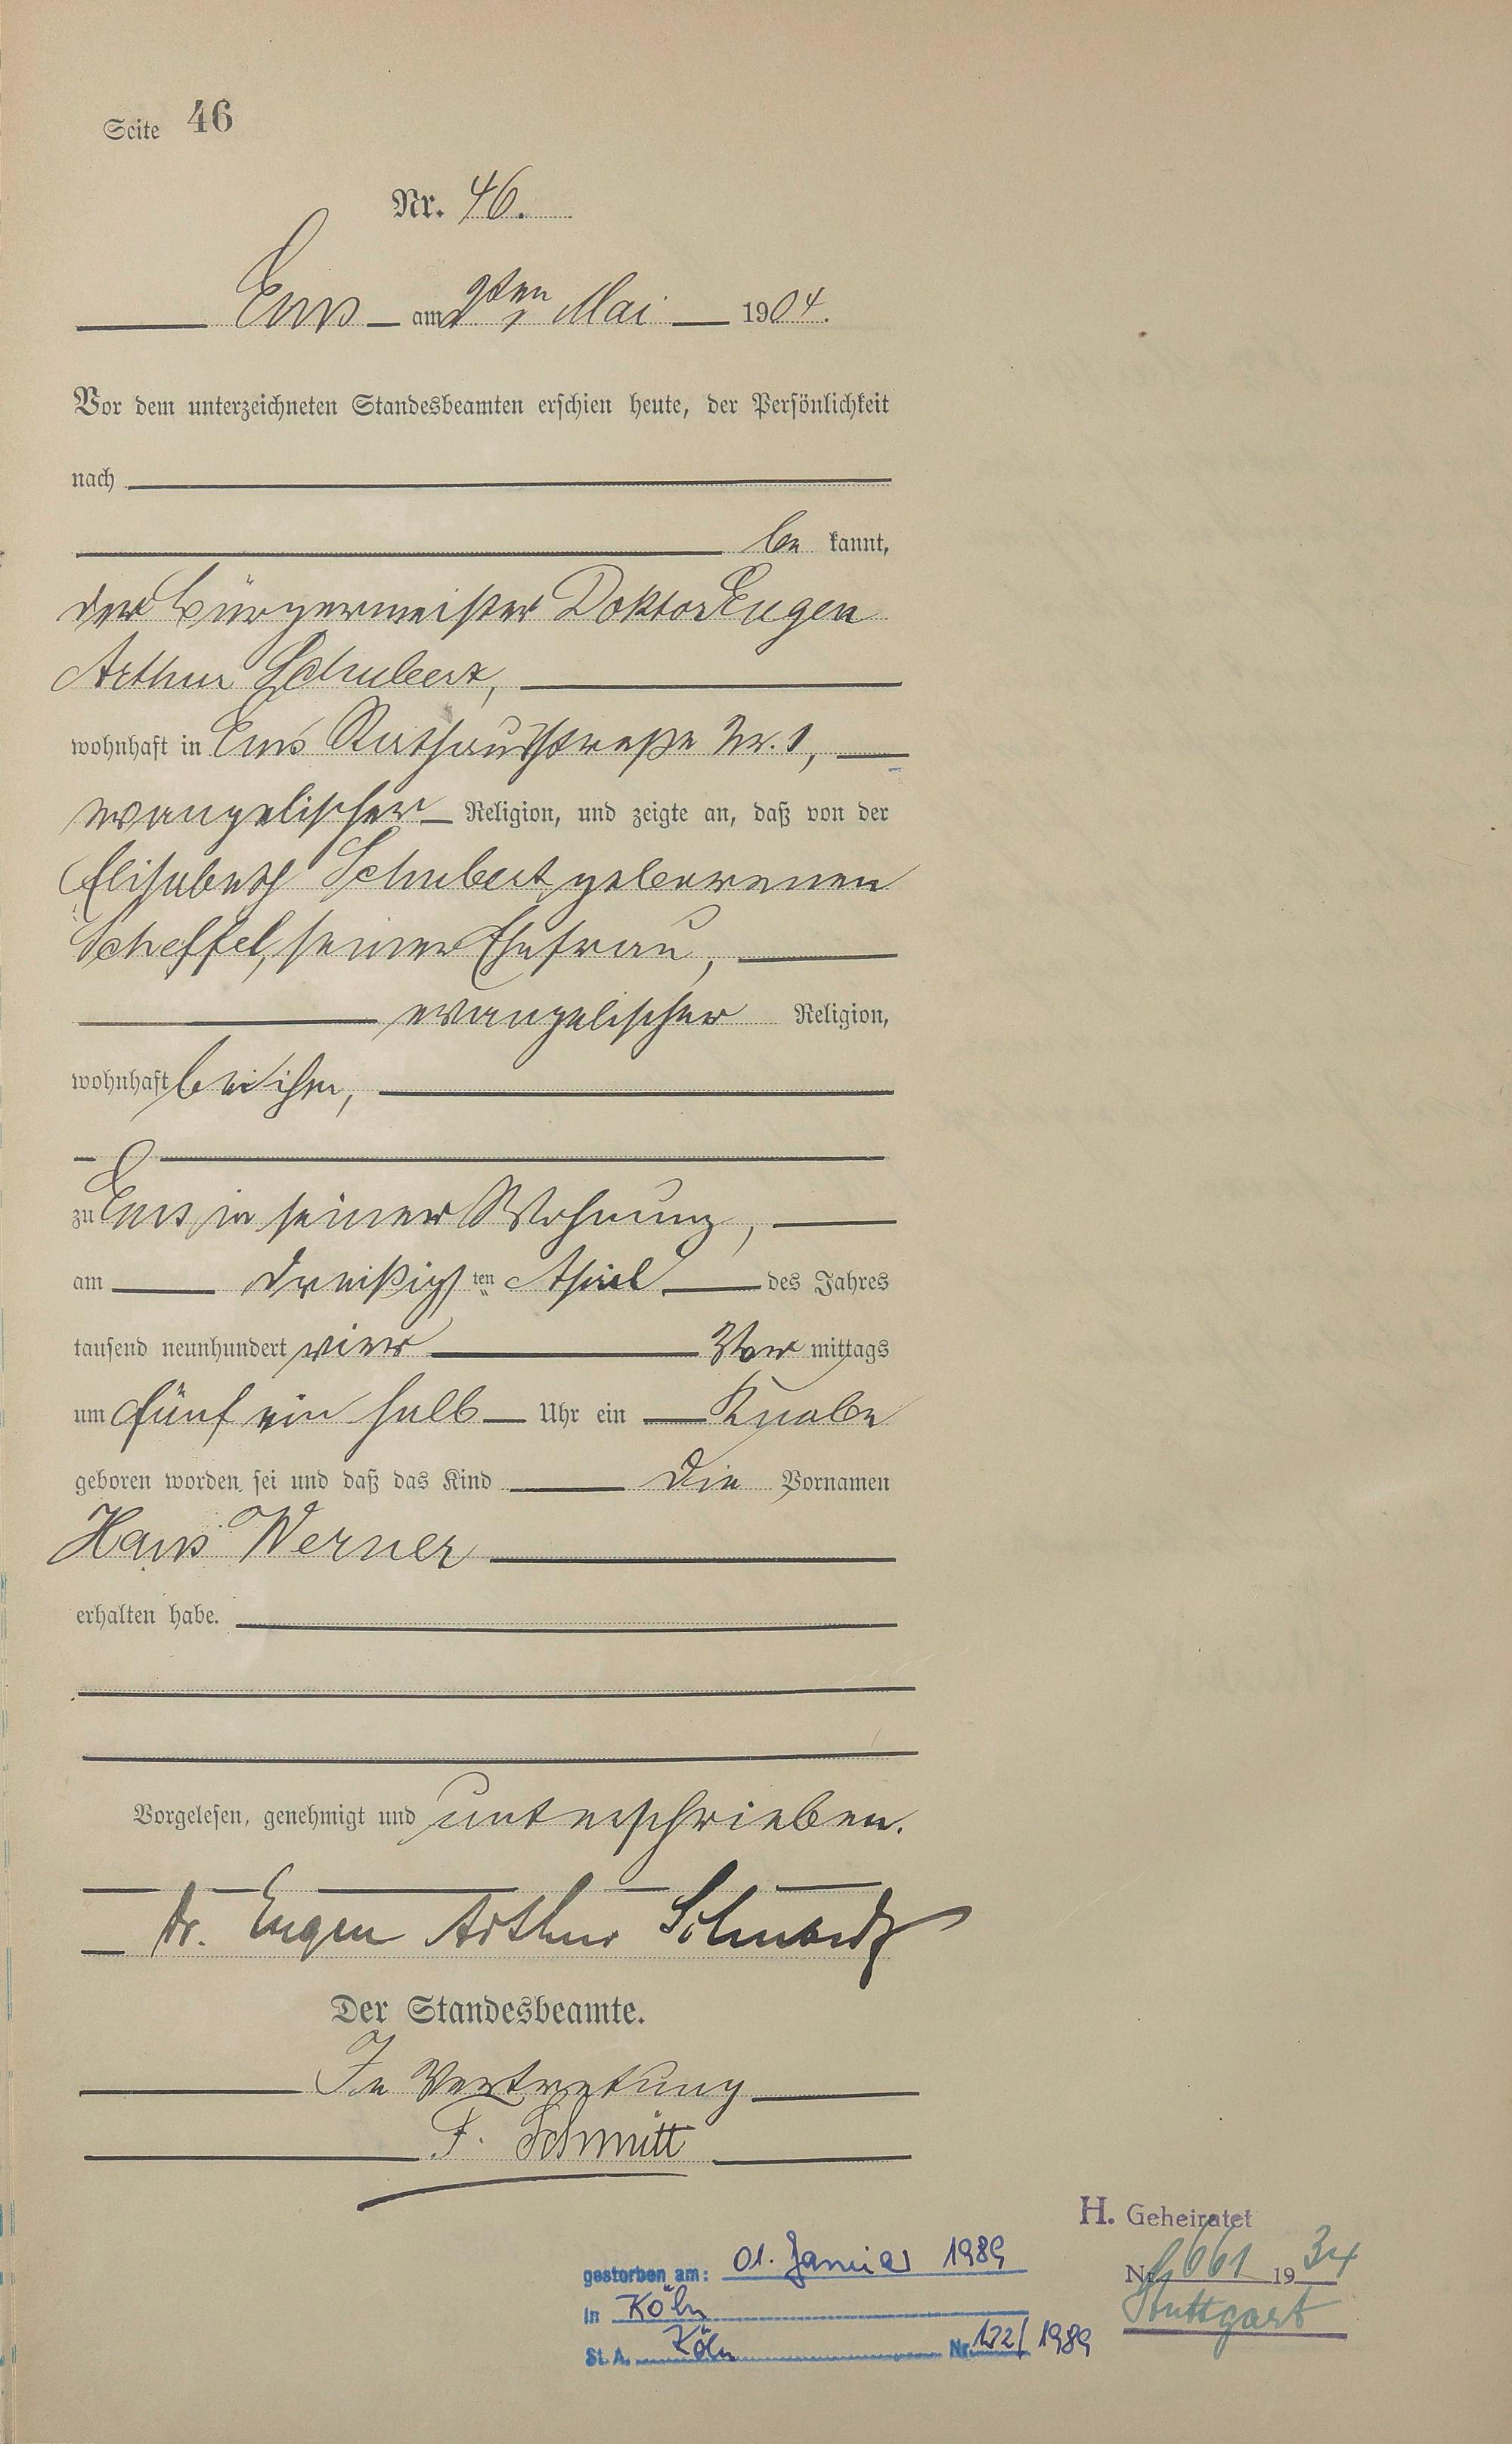 Seite 46
Nr. 46.
Ems am ten Mai 1904.
Vor dem unterzeichneten Standesbeamten erschien heute, der Persönlichkeit
nach
be kannt,
der Bürgermeister Doktor Eugen
Arthur Schubert,
wohnhaft in Ems Rathausstraße Nr. 1,
evangelischer Religion, und zeigte an, daß von der
Elisabeth Schubert geborenen
Scheffel, seiner Ehefrau,
evangelischer Religion,
wohnhaft bei ihm,
zu Ems in seiner Wohnung,
am dreißigsten April des Jahres
tausend neunhundert vier Vor mittags
um fünf ein halb Uhr ein Knabe
geboren worden sei und daß das Kind die Vornamen
Hans Werner
erhalten habe.
Vorgelesen, genehmigt und unterschrieben.
Dr. Eugen Arthur Schubert
Der Standesbeamte.
In Vertretung
F. Schmitt
H. Geheiratet
Nr. 661 1934
Stuttgart
gestorben am: 01. Januar 1989
in Köln
St. A. Köln Nr. 122/1989